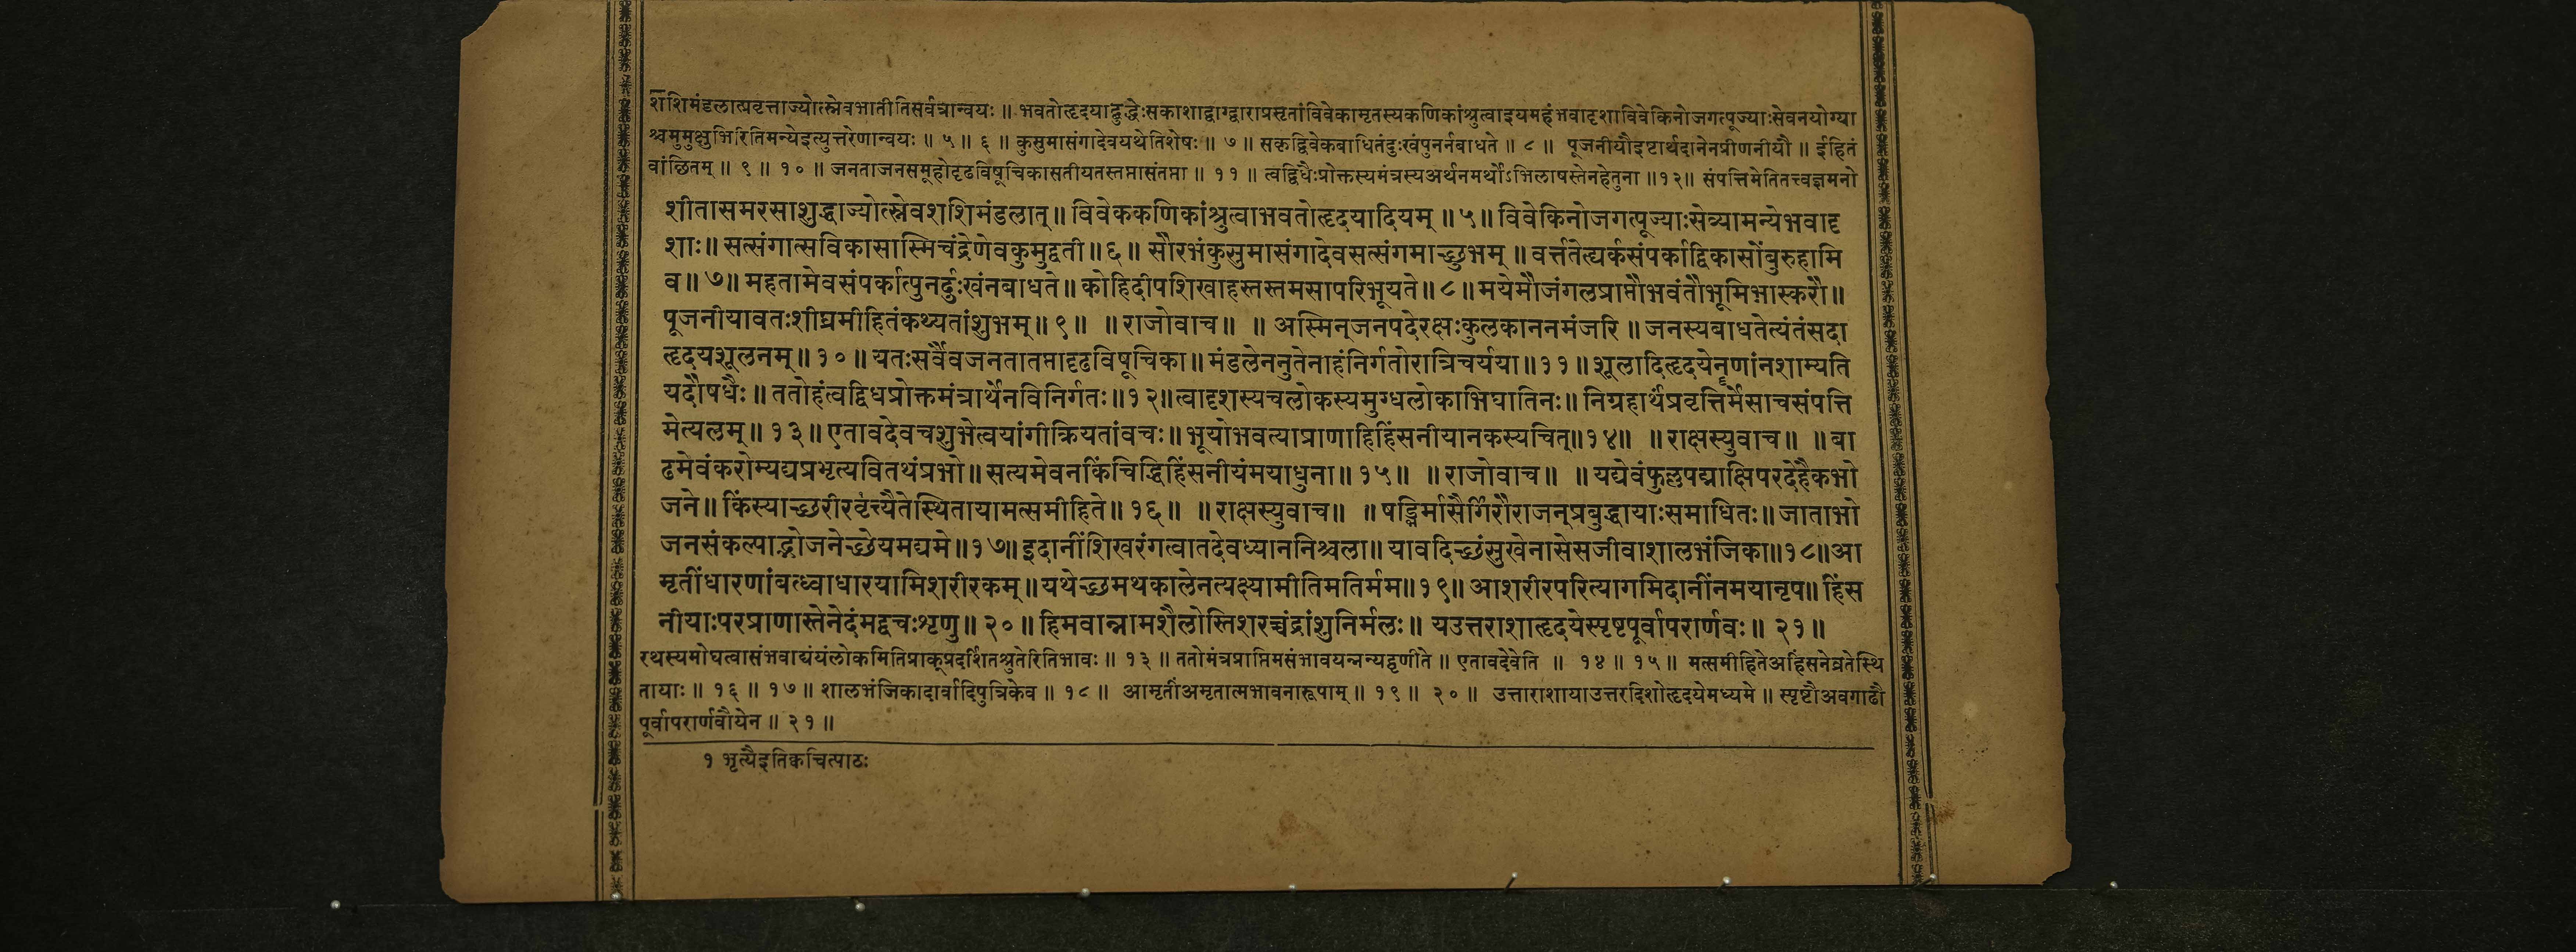 शशिमंडलात्प्रवृत्ताज्योत्स्नेवभातीतिसर्वत्रान्वयः ॥ भवतोत्हृदयाद्बुद्धेःसकाशाद्वाग्द्वाराप्रसृतांविवेकामृतस्यकणिकांश्रुत्वाइयमहंभवादृशाविवेकिनोजगत्पूज्याःसेवनयोग्या
श्चमुमुक्षुभिरितिमन्येइत्युत्तरेणान्वयः ॥ ५ ॥ ६ ॥ कुसुमासंगादेवयथेतिशेषः ॥ ७ ॥ सकृद्विवेकबाधितंदुःखंपुनर्नबाधते ॥ ८ ॥ पूजनीयौइष्टार्थदानेनप्रीणनीयौ ॥ ईहितं
वांछितम् ॥ ९ ॥ १० ॥ जनताजनसमूहोदृढविषूचिकासतीयतस्तप्तासंतप्ता ॥ ११ ॥ त्वद्विधैःप्रोक्तस्यमंत्रस्यअर्थनमर्थोऽभिलाषस्तेनहेतुना ॥१२॥ संपत्तिमेतितत्त्वज्ञमनो
शीतासमरसाशुद्धाज्योत्स्नेवशशिमंडलात् ॥ विवेककणिकांश्रुत्वाभवतोहृदयादियम् ॥ ५ ॥ विवेकिनोजगत्पूज्याःसेव्यामन्येभवादृ
शाः ॥ सत्संगात्सविकासास्मिचंद्रेणेवकुमुद्वती ॥ ६ ॥ सौरभंकुसुमासंगादेवसत्संगमाच्छुभम् ॥ वर्त्ततेत्द्यर्कसंपर्काद्विकासोंबुरुहामि
व ॥ ७ ॥ महतामेवसंपर्कात्पुनर्दुःखंनबाधते ॥ कोहिदीपशिखाहस्तस्तमसापरिभूयते ॥ ८ ॥ मयेमौजंगलप्राप्तौभवंतौभूमिभास्करौ ॥
पूजनीयावतःशीघ्रमीहितंकथ्यतांशुभम् ॥ ९ ॥ ॥ राजोवाच ॥ ॥ अस्मिन्जनपदेरक्षःकुलकाननमंजरि ॥ जनस्यबाधतेत्यंतंसदा
हृदयशूलनम् ॥ १० ॥ यतःसर्वैवजनतातप्तादृढविषूचिका ॥ मंडलेननुतेनाहंनिर्गतोरात्रिचर्यया ॥ ११ ॥ शूलादिहृदयेनॄणांनशाम्यति
यदौषधैः ॥ ततोहंत्वद्विधप्रोक्तमंत्रार्थेनविनिर्गतः ॥१२॥ त्वादृशस्यचलोकस्यमुग्धलोकाभिघातिनः ॥ निग्रहार्थंप्रवृत्तिर्मेसाचसंपत्ति
मेत्यलम् ॥ १३ ॥ एतावदेवचशुभेत्वयांगीक्रियतांवचः ॥ भूयोभवत्याप्राणाहिहिंसनीयानकस्यचित् ॥ १४ ॥ ॥ राक्षस्युवाच ॥ ॥ बा
ढमेवंकरोम्यद्यप्रभृत्यवितथंप्रभो ॥ सत्यमेवनकिंचिद्धिहिंसनीयंमयाधुना ॥ १५ ॥ ॥ राजोवाच ॥ ॥ यद्येवंफुल्लपद्माक्षिपरदेहैकभो
जने ॥ किंस्याच्छरीरवृत्त्यैतेस्थितायामत्समीहिते ॥ १६ ॥ ॥ राक्षस्युवाच ॥ ॥ षड्भिर्मासैर्गिरौराजन्प्रबुद्धायाःसमाधितः ॥ जाताभो
जनसंकल्पाद्भोजनेच्छेयमद्यमे ॥ १७ ॥ इदानींशिखरंगत्वातदेवध्याननिश्चला ॥ यावदिच्छंसुखेनासेसजीवाशालभंजिका ॥ १८ ॥ आ
मृतींधारणांबद्ध्वाधारयामिशरीरकम् ॥ यथेच्छमथकालेनत्यक्ष्यामीतिमतिर्मम ॥ १९ ॥ आशरीरपरित्यागमिदानींनमयानृप ॥ हिंस
नीयाःपरप्राणास्तेनेदंमद्वचःशृणु ॥ २० ॥ हिमवान्नामशैलोस्तिशरच्चंद्रांशुनिर्मलः ॥ यउत्तराशाहृदयेस्पृष्टपूर्वापरार्णवः ॥ २१ ॥
रथस्यमोघत्वासंभवाद्यंयंलोकमितिप्राक्प्रदर्शितश्रुतेरितिभावः ॥ १३ ॥ ततोमंत्रप्राप्तिमसंभावयन्नन्यद्वृणीते ॥ एतावदेवेति ॥ १४ ॥ १५ ॥ मत्समीहितेअहिंसनेव्रतेस्थि
तायाः ॥ १६ ॥ १७ ॥ शालभंजिकादार्वादिपुत्रिकेव ॥ १८ ॥ आमृतींअमृतात्मभावनारूपाम् ॥ १९ ॥ २० ॥ उत्ताराशायाउत्तरदिशोहृदयेमध्यमे ॥ स्पृष्टौअवगाढौ
पूर्वापरार्णवौयेन ॥ २१ ॥
१ भृत्यैइतिक्वचित्पाठः